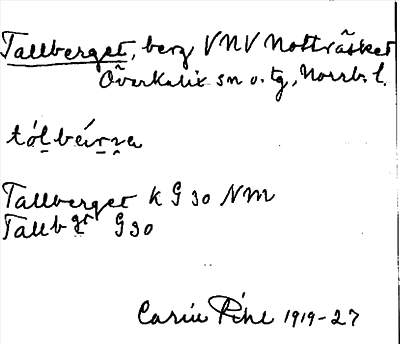 Tallberget, berg VNV Nottträsket
Överkalix sn o. tg, Norrb. l.
tólbérra
Tallberget k G 30 NM
Tallbgt G 30
Carin Pihl 1919-27